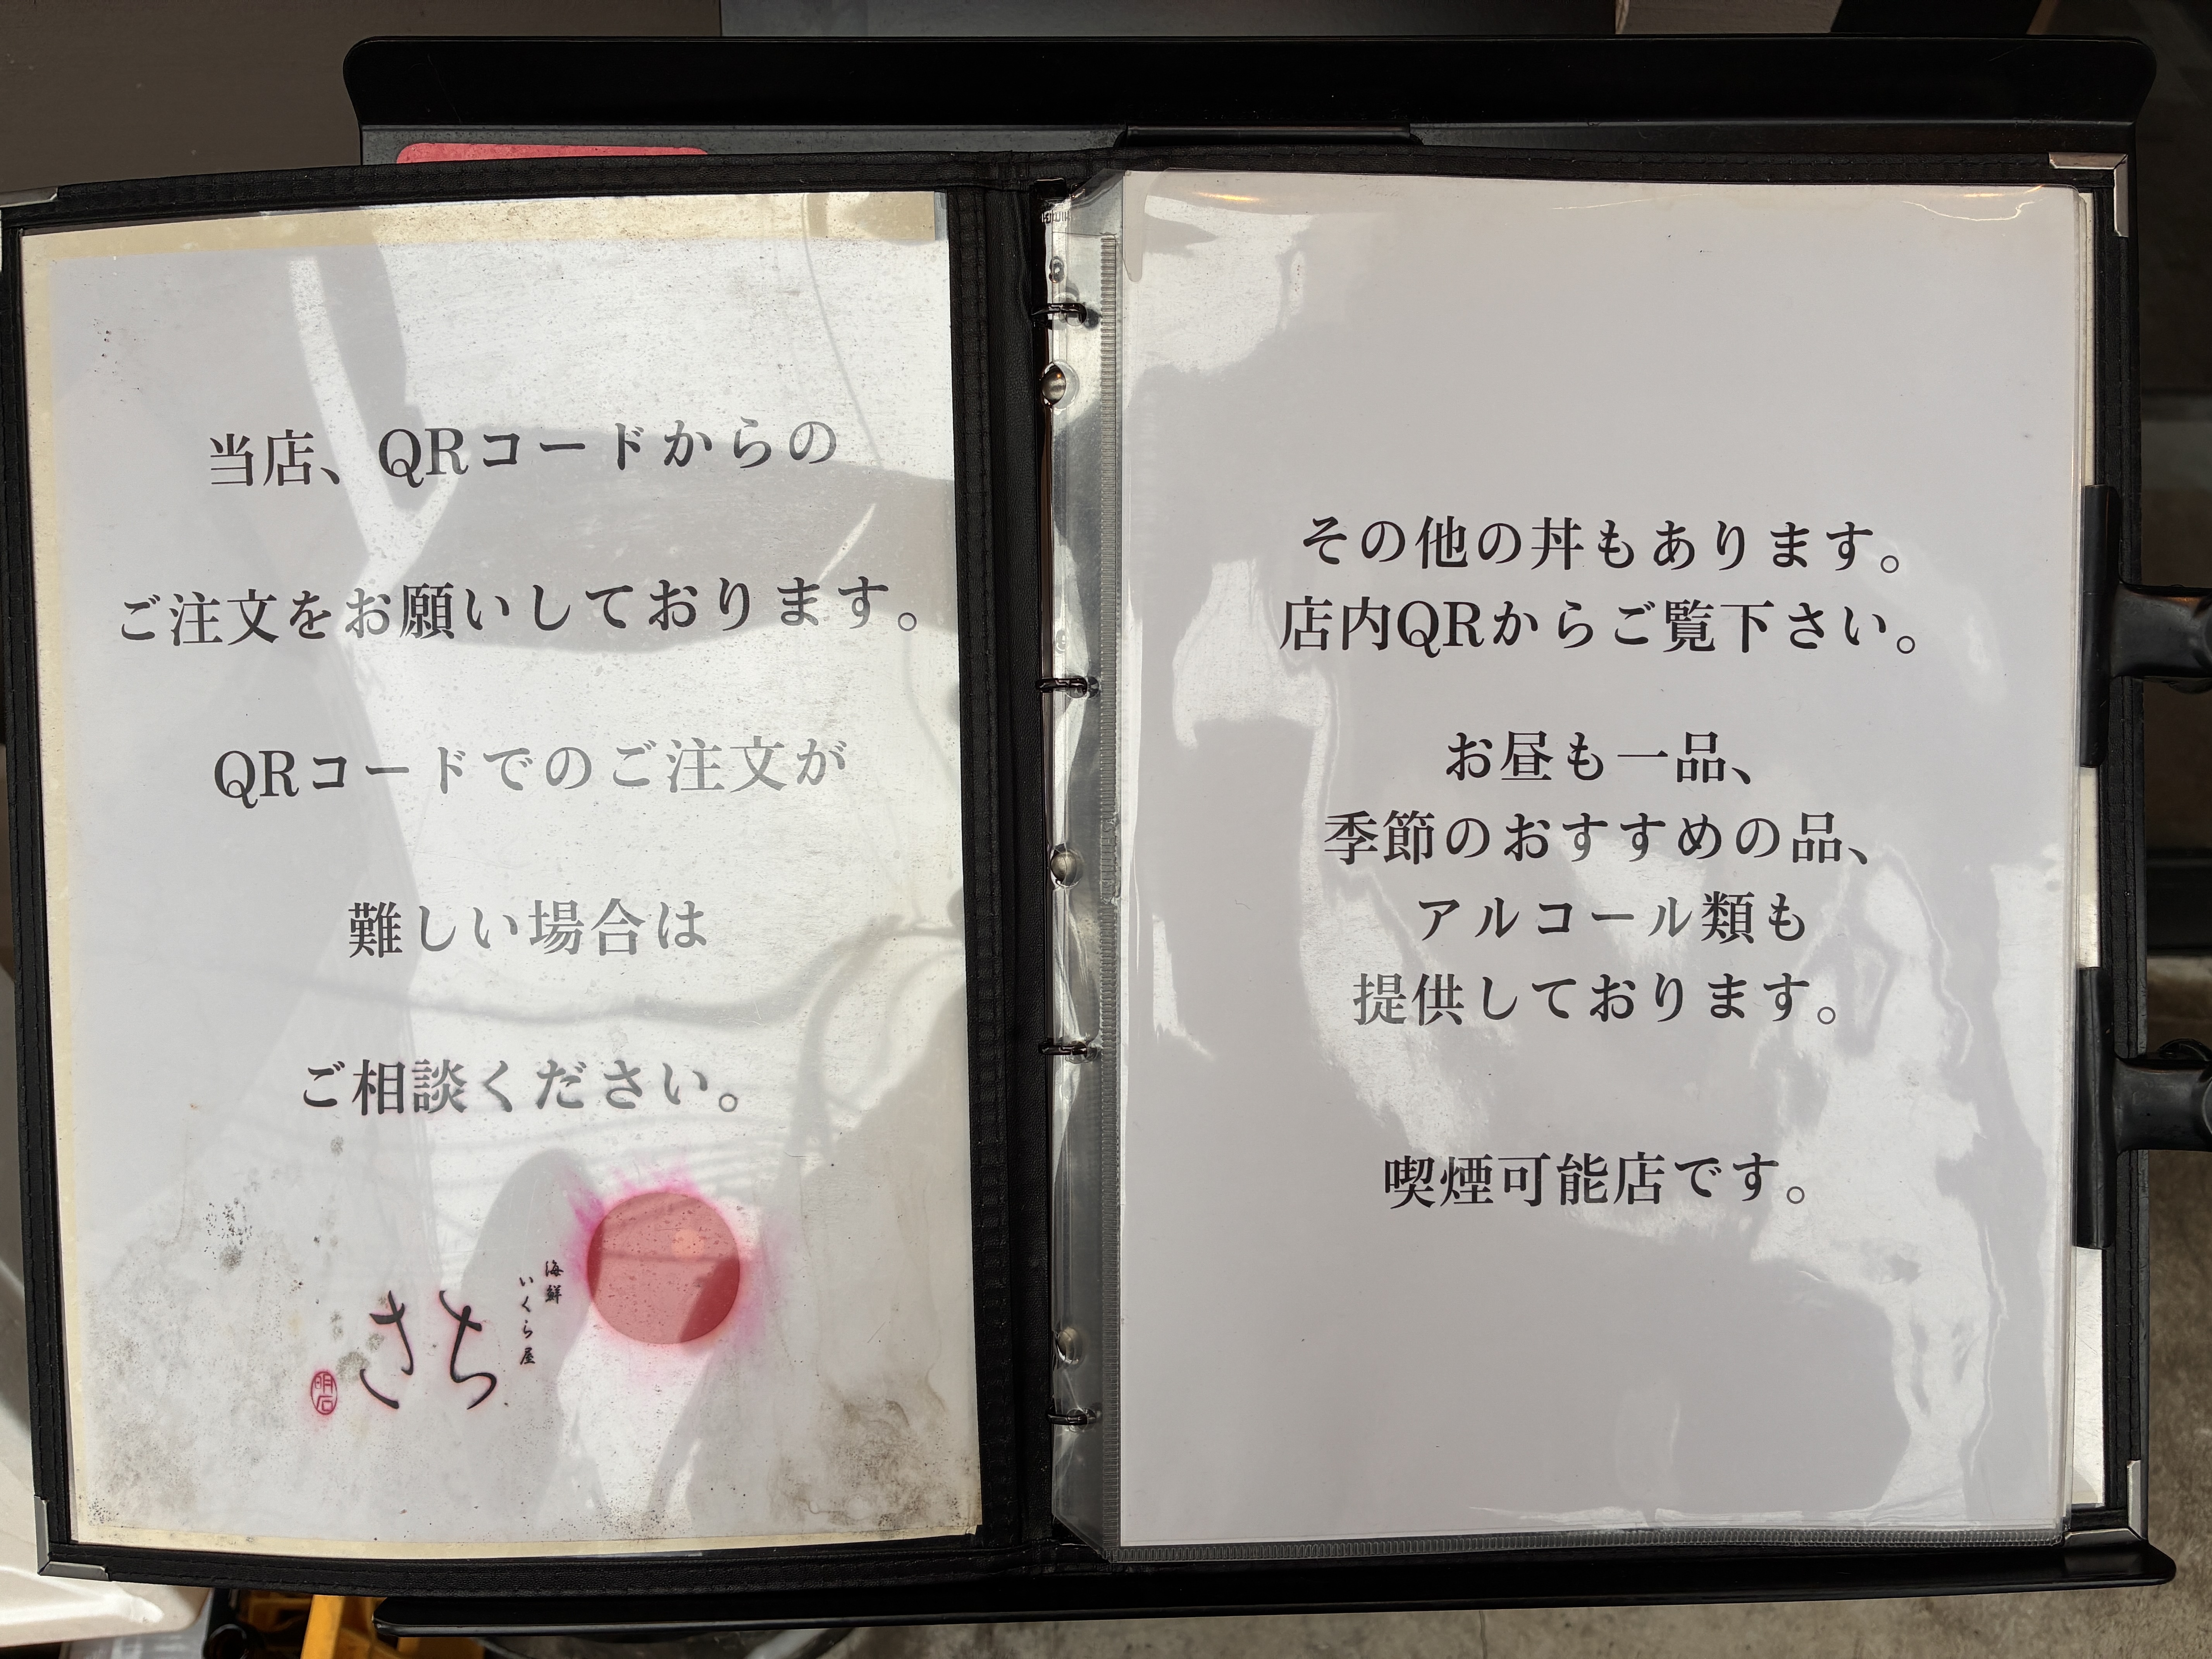 当店、QRコードからの
ご注文をお願いしております。
QRコードでのご注文が
難しい場合は
ご相談ください。
海鮮
いくら屋
さち
明石
その他の丼もあります。
店内QRからご覧下さい。
お昼も一品、
季節のおすすめの品、
アルコール類も
提供しております。
喫煙可能店です。